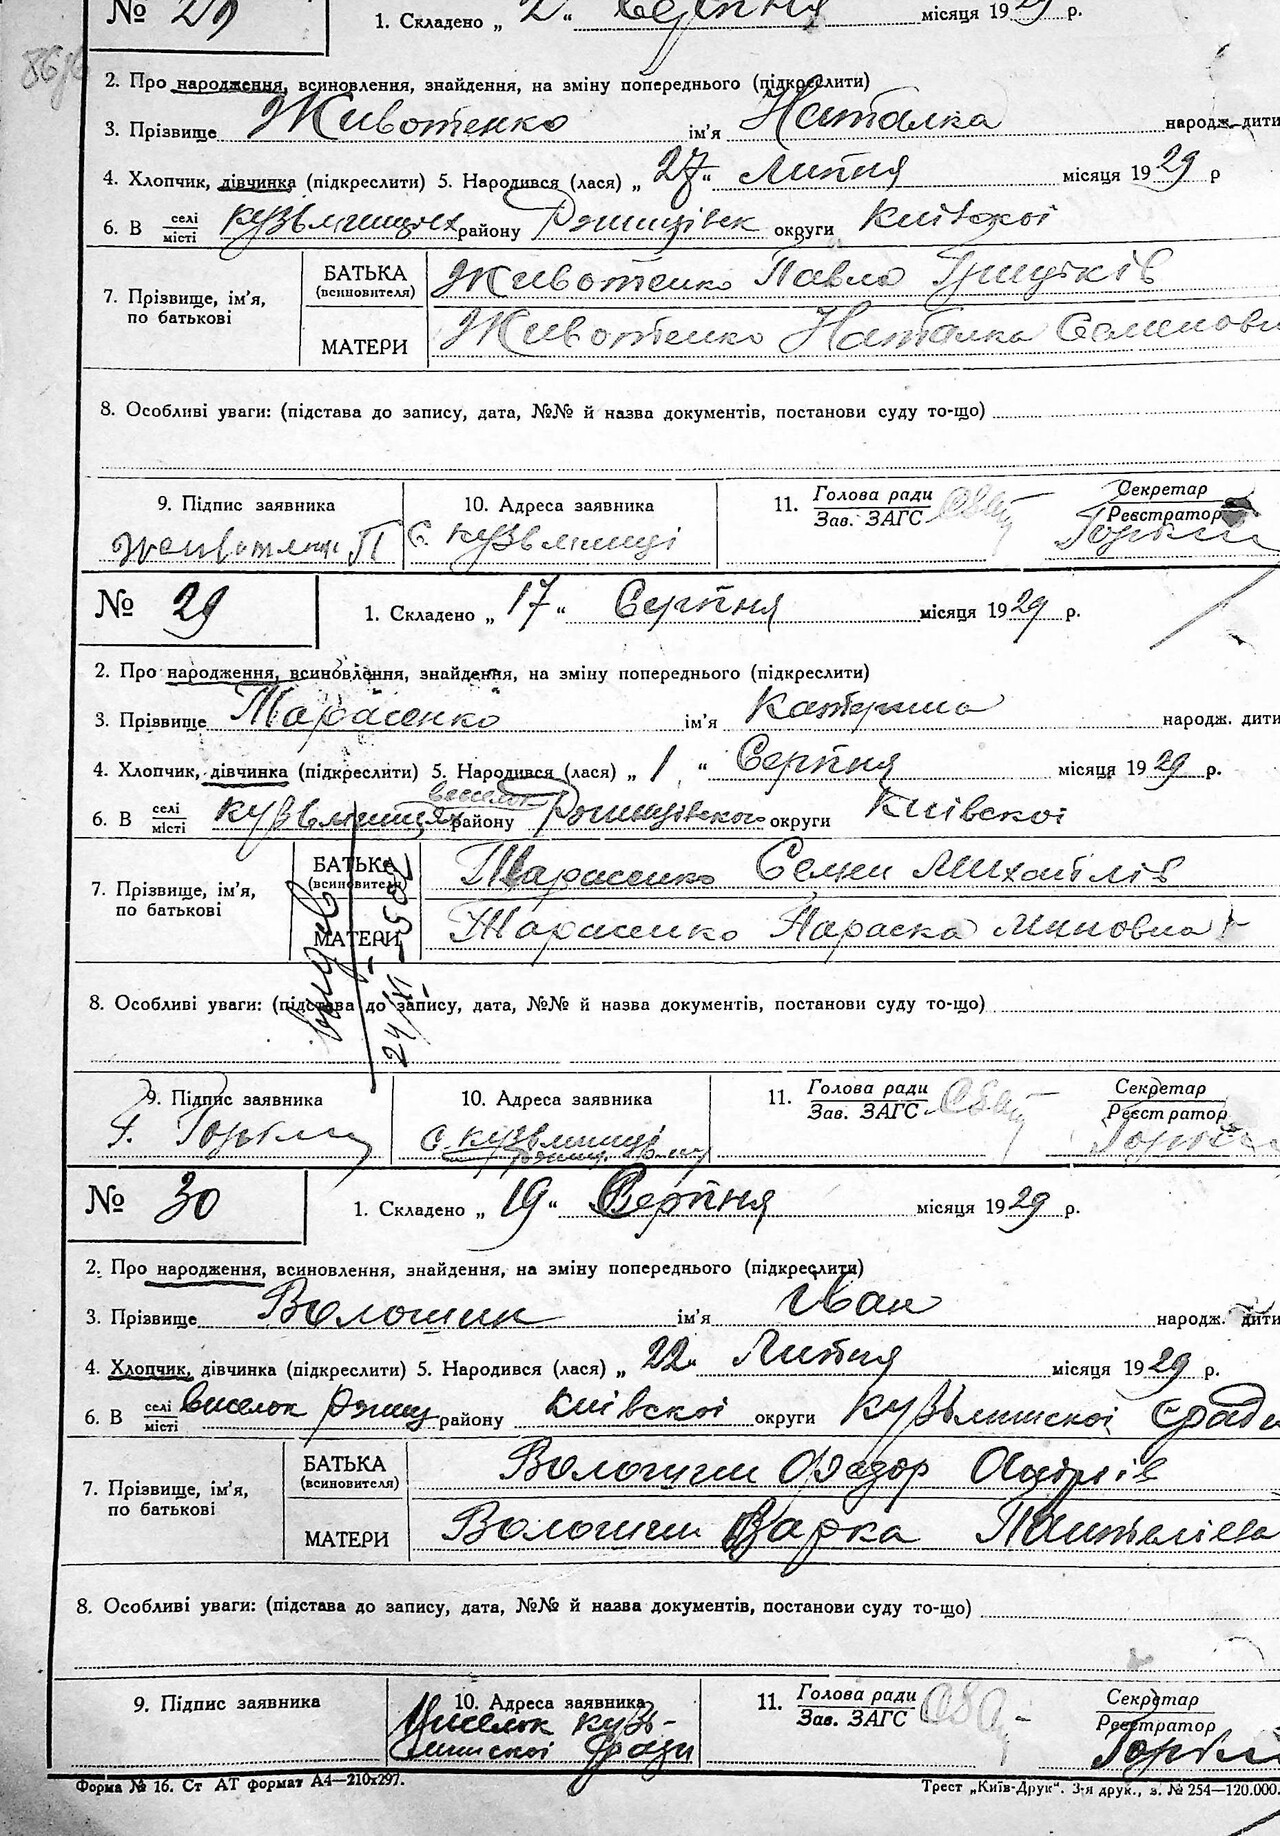 № 1. Складено „ 2 “ Серпня місяця 1929 р.
2. Про народження, всиновлення, знайдення, на зміну попереднього (підкреслити)
3. Прізвище Животенко ім'я Наталка народж. дити
4. Хлопчик, дівчинка (підкреслити) 5. Народився (лася) „ 27 “ Липня місяця 1929 р
6. В селі місті району округи Київскоі
7. Прізвище, ім'я, по батькові
БАТЬКА (всиновителя) Животенко Павло Грицьків
МАТЕРИ Животенко Наталка Семенови
8. Особливі уваги: (підстава до запису, дата, №№ й назва документів, постанови суду то-що)
9. Підпис заявника 10. Адреса заявника 11. Голова ради Зав. ЗАГС Секретар Реєстратор
П с.
№ 29 1. Складено „ 17 “ Серпня місяця 1929 р.
2. Про народження, всиновлення, знайдення, на зміну попереднього (підкреслити)
3. Прізвище Тарасенко ім'я Катерина народж. дити
4. Хлопчик, дівчинка (підкреслити) 5. Народився (лася) „ 1 “ Серпня місяця 1929 р.
6. В селі місті району округи Київскоі
7. Прізвище, ім'я, по батькові
БАТЬКА (всиновителя) Тарасенко Семен Михайлів
МАТЕРИ Тарасенко Параска Миновна
8. Особливі уваги: (підстава до запису, дата, №№ й назва документів, постанови суду то-що)
9. Підпис заявника 10. Адреса заявника 11. Голова ради Зав. ЗАГС Секретар Реєстратор
с.
№ 30 1. Складено „ 19 “ Серпня місяця 1929 р.
2. Про народження, всиновлення, знайдення, на зміну попереднього (підкреслити)
3. Прізвище Волошин ім'я Іван народж. дити
4. Хлопчик, дівчинка (підкреслити) 5. Народився (лася) „ 22 “ Липня місяця 1929 р.
6. В селі місті виселок району Київскоі округи
7. Прізвище, ім'я, по батькові
БАТЬКА (всиновителя) Волошин Федор Андріів
МАТЕРИ Волошин Варка
8. Особливі уваги: (підстава до запису, дата, №№ й назва документів, постанови суду то-що)
9. Підпис заявника 10. Адреса заявника 11. Голова ради Зав. ЗАГС Секретар Реєстратор
Виселок
Форма № 16. Ст АТ формат А4—210х297. Трест „Київ-Друк“. 3-я друк., з. № 254—120.000.